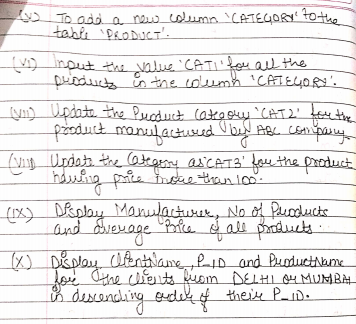 (V) To add a new column 'CATEGORY' to the
table 'PRODUCT'.
(VI) Input the value 'CAT1' for all the
products in the column 'CATEGORY'.
(VII) Update the Product Category 'CAT2' for the
product manufactured by ABC company
(VIII) Update the Category as 'CAT3' for the product
having price more than 100.
(IX) Display Manufacturer, No of Products
and average Price of all products.
(X) Display ClientName, P_ID and ProductName
for the clients from DELHI or MUMBAI
in descending order of their P_ID.